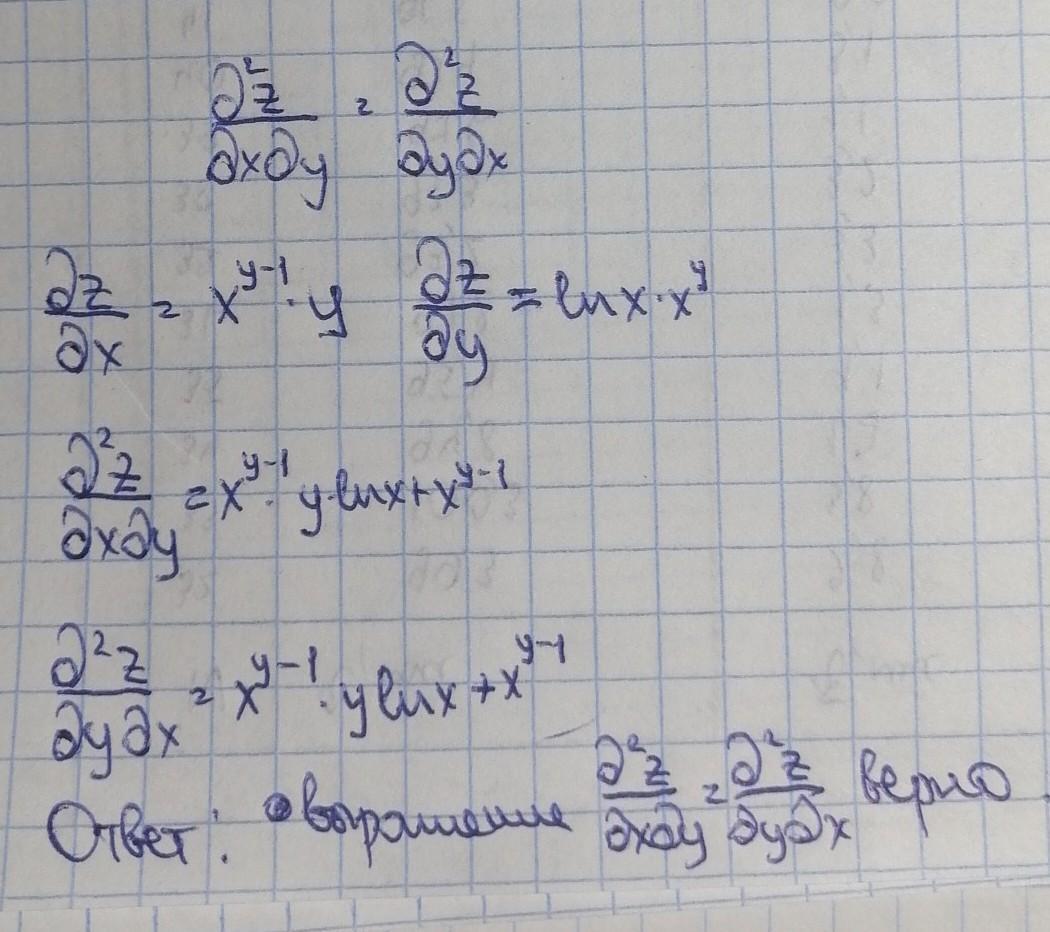 ∂²z/∂x∂y = ∂²z/∂y∂x
∂z/∂x = x^(y-1) · y   ∂z/∂y = ln x · x^y
∂²z/∂x∂y = x^(y-1) · y · ln x + x^(y-1)
∂²z/∂y∂x = x^(y-1) · y ln x + x^(y-1)
Ответ: выражение ∂²z/∂x∂y = ∂²z/∂y∂x верно